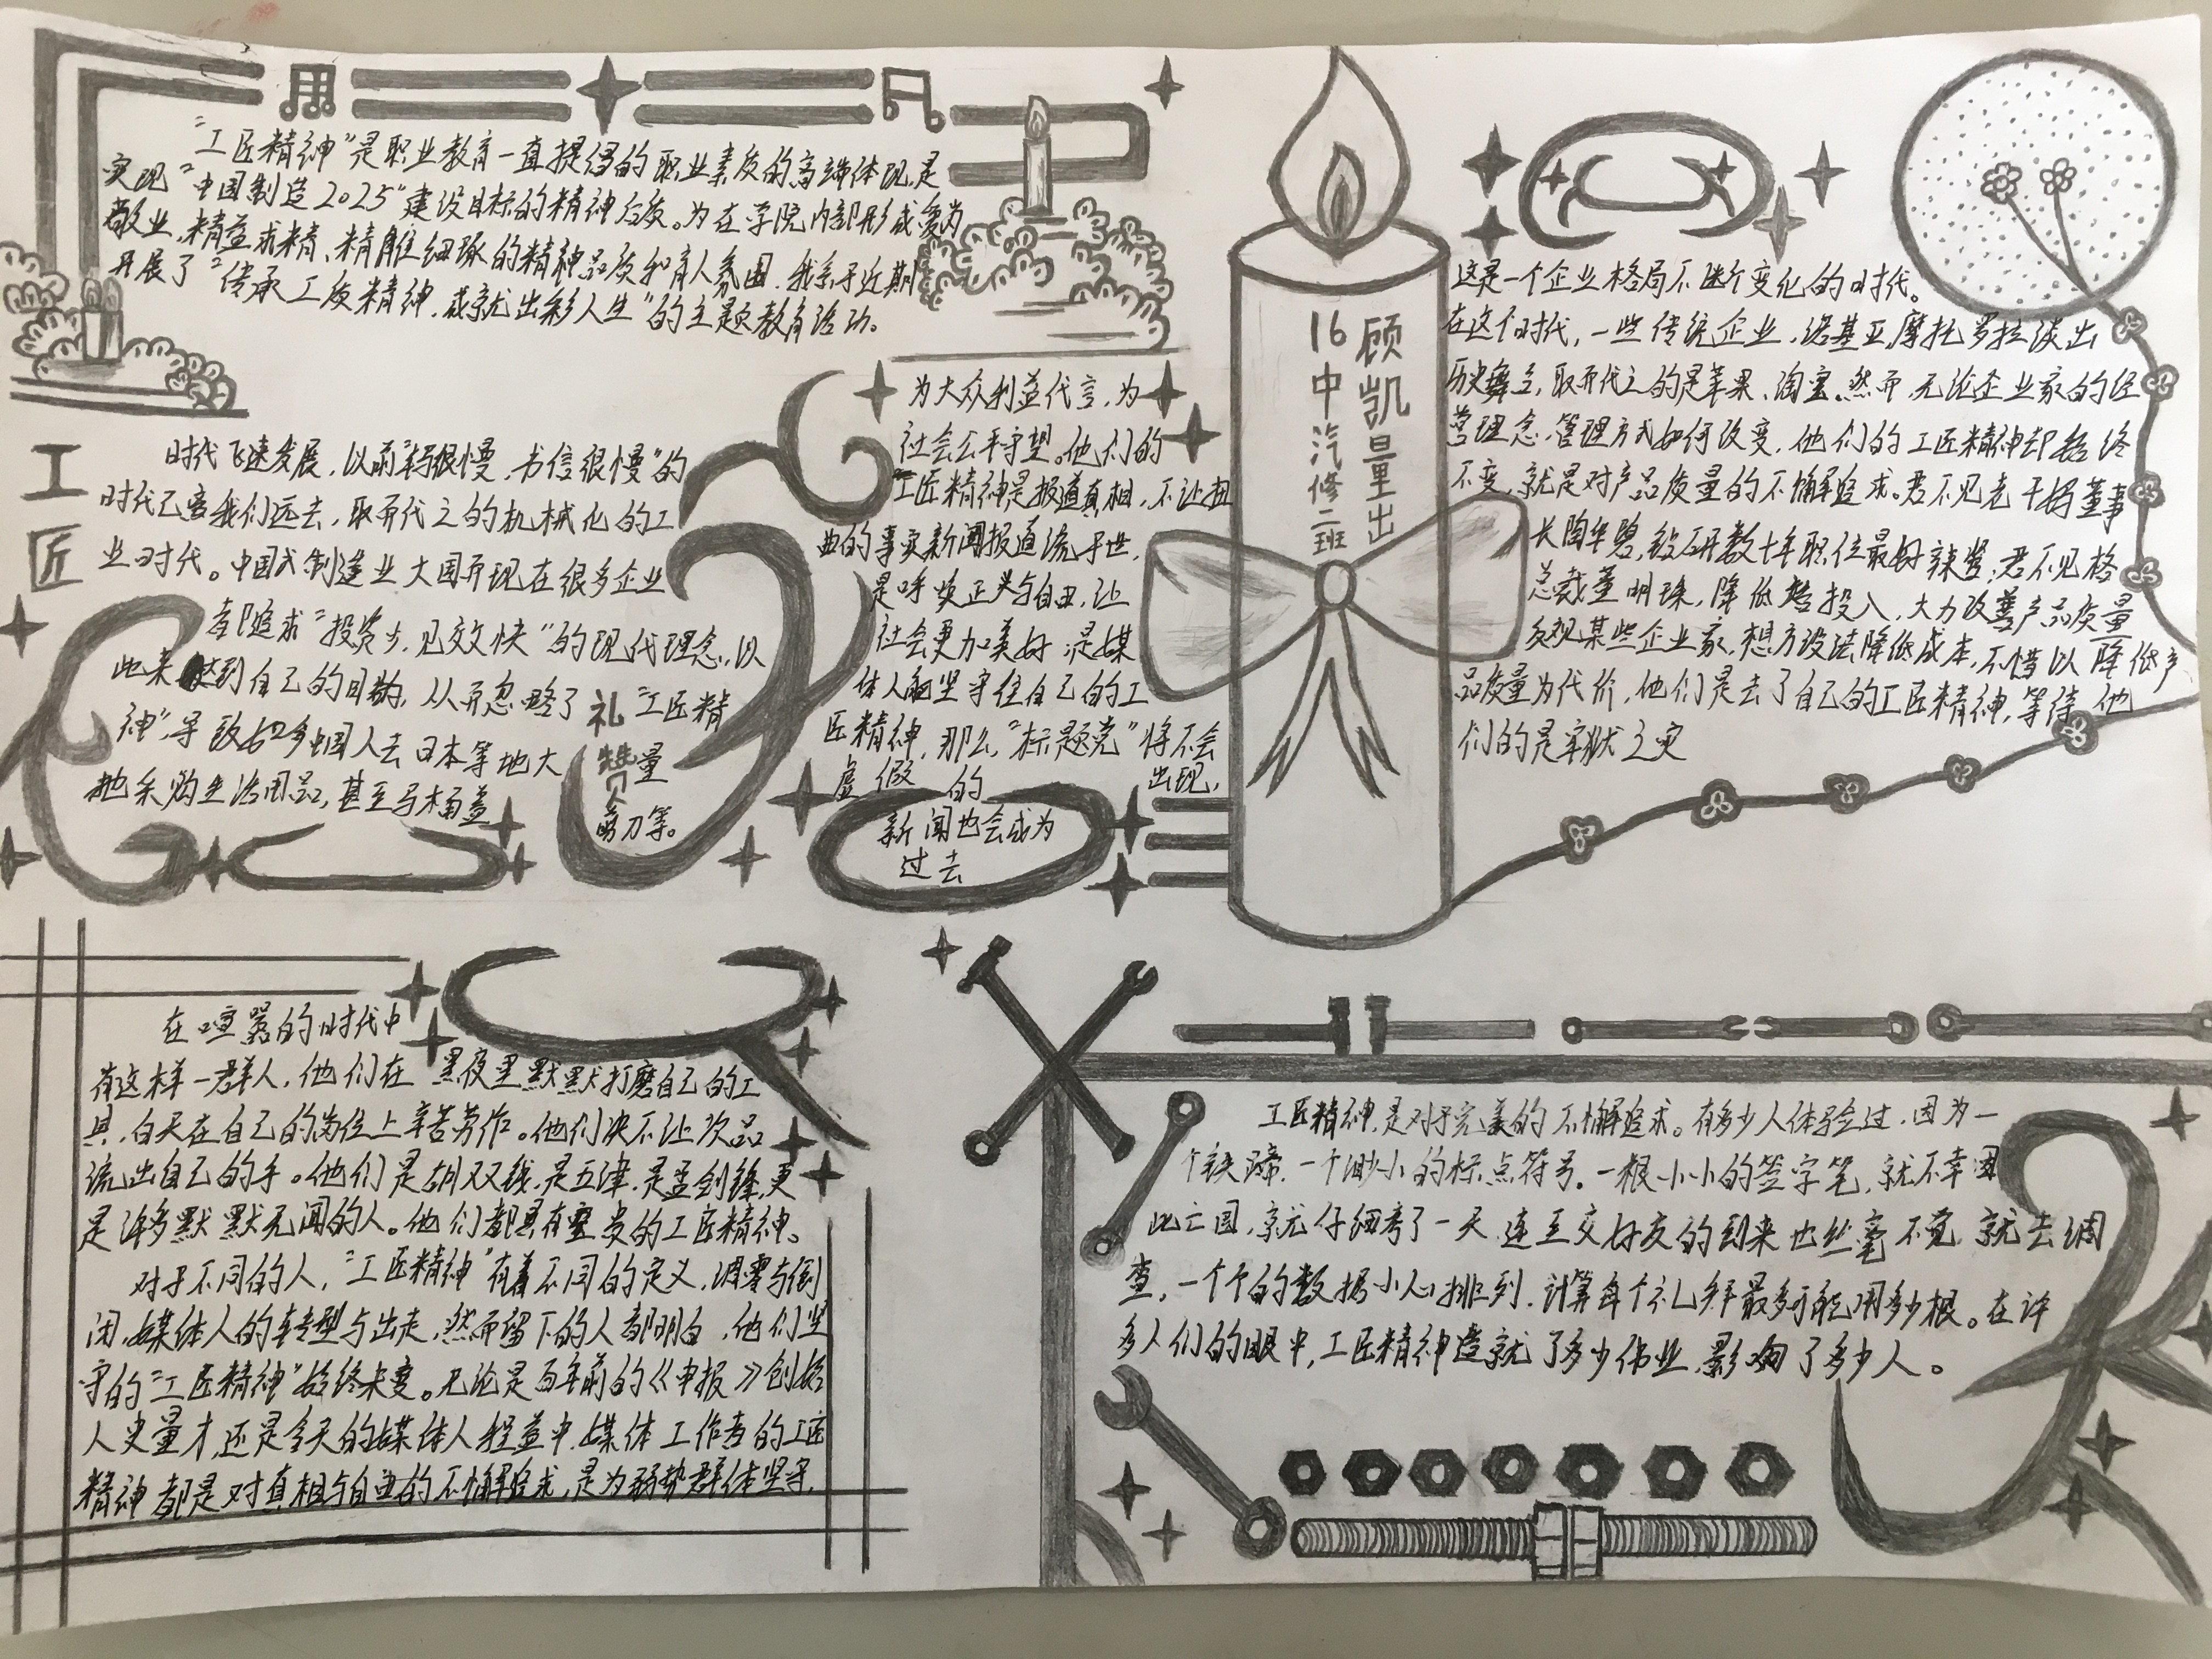 “工匠精神”是职业教育一直提倡的职业素质的高端体现,是
实现“中国制造2025”建设目标的精神
敬业、精益求精、精雕细琢的精神品质和育人氛围,我系于近期
开展了“传承工匠精神,成就出彩人生”的主题教育活动。
工
匠
时代飞速发展,以前“车马很慢,书信很慢”的
时代已离我们远去,取而代之的机械化的工
业时代。中国式制造业大国而现在很多企业
都追求“投资少,见效快”的现代理念,以
此来达到自己的目的,从而忽略了“工匠精
神”,导致好多中国人去日本等地大量
抛采购生活用品,甚至马桶盖剪刀等。
礼
赞
为大众利益代言,为
社会公平守望。他们的
“工匠精神是报道真相,不让扭
曲的事实新闻报道流于世,
是呼唤正义与自由,让
社会更加美好,是媒
体人能坚守住自己的工
匠精神,那么,“标题党”将不会
出现,
虚假的
新闻也会成为
过去
顾凯量出
16中汽修二班
这是一个企业格局不断变化的时代。
在这个时代,一些传统企业,诺基亚摩托罗拉淡出
历史舞台,取而代之的是苹果、淘宝。然而,无论企业家的经
营理念、管理方式如何改变,他们的工匠精神却始终
不变,就是对产品质量的不懈追求。君不见老干妈董事
长陶华碧,钻研数十年职位最好辣酱,君不见格
总裁董明珠,降低投入,大力改善产品质量
反观某些企业家,想方设法降低成本,不惜以降低产
品质量为代价,他们是去了自己的工匠精神,等待他
们的是牢狱之灾
在喧嚣的时代中
有这样一群人,他们在黑夜里默默打磨自己的工
具,白天在自己的岗位上辛苦劳作。他们决不让次品
流出自己的手。他们是胡双钱,是王津,是孟剑锋,更
是许多默默无闻的人。他们都具有宝贵的工匠精神。
对于不同的人,“工匠精神”有着不同的定义,凋零与倒
闭,媒体人的转型与出走,然而留下的人都明白,他们坚
守的“工匠精神”始终未变。无论是百年前的《申报》创始
人史量才,还是今天的媒体人程益中,媒体工作者的工匠
精神都是对真相与自由的不懈追求,是为弱势群体坚守,
工匠精神,是对于完美的不懈追求。有多少人体验过,因为一
个铁蹄,一个渺小的标点符号,一根小小的签字笔,就不幸因
此亡国,就仔细考了一天,连至交好友的到来也丝毫不觉,就去调
查,一个个的数据小心排列,计算每个礼拜最多可能用多少根。在许
多人们的眼中,工匠精神造就了多少伟业,影响了多少人。